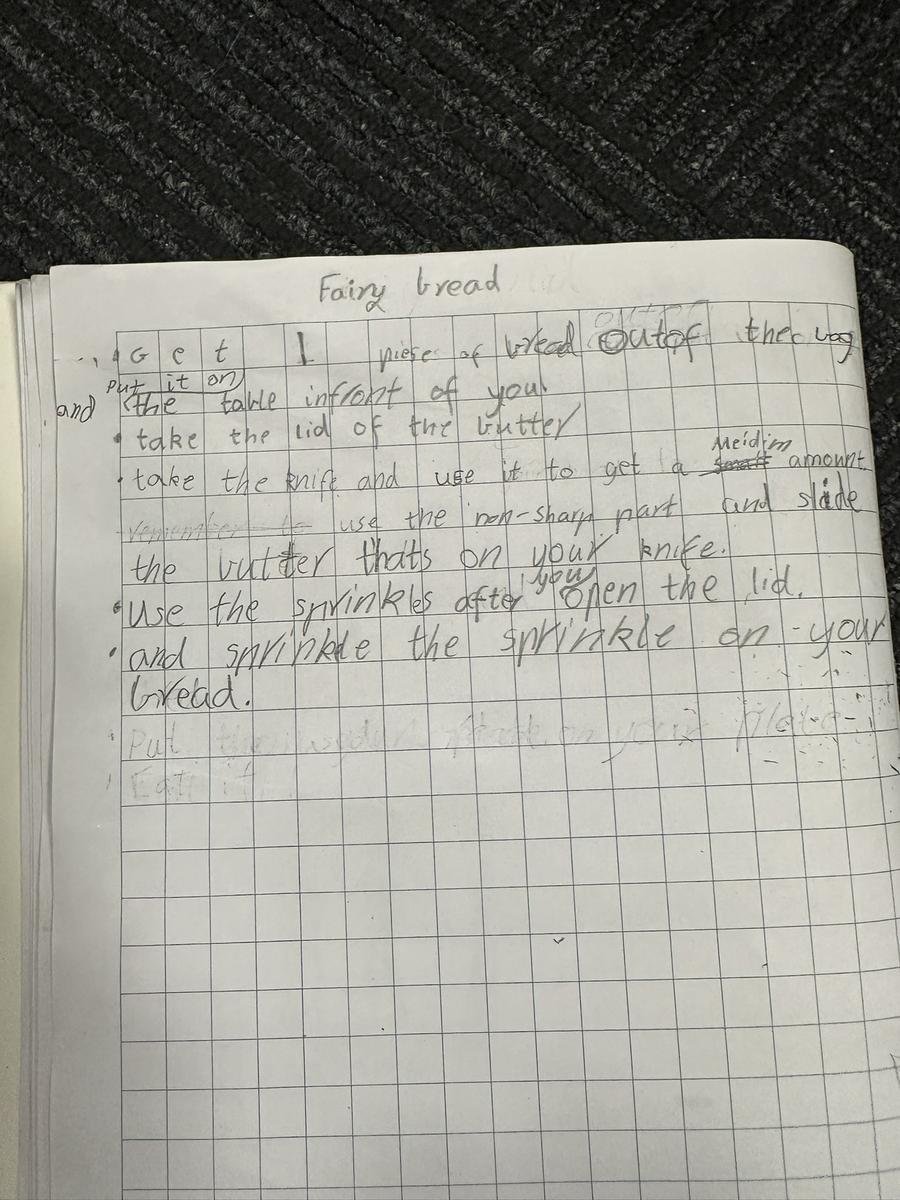 Fairy bread
Get 1 piese of bread outof the bag
and put it on
the table infront of you
• take the lid of the butter
• take the knife and use it to get a Meidim small amount
remember to use the non-sharp part and slide
the butter thats on your knife.
• use the sprinkles after you open the lid.
• and sprinkle the sprinkle on your
bread.
Put the on your plate
Eat it